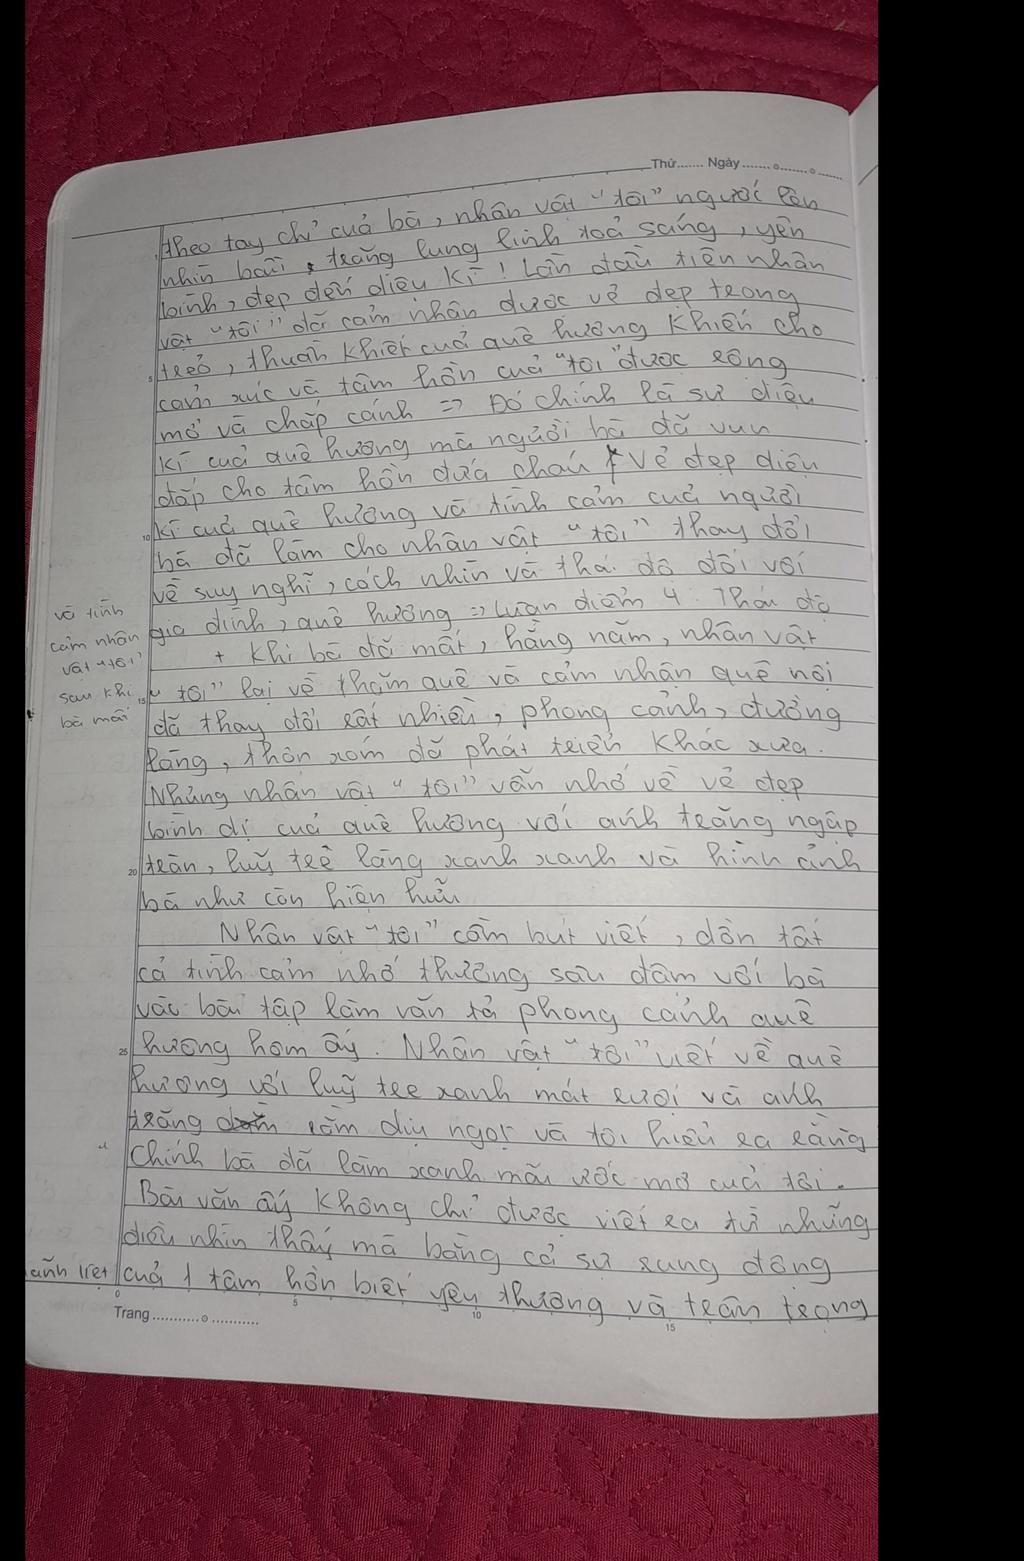 Thứ....... Ngày.......
theo tay chỉ cuả bà, nhân vât "tôi" ngước lên
nhìn bầu, trăng lung linh toả sáng, yên
bình, đẹp đến diệu kì! Lần đầu tiên nhân
vât "tôi" đã cảm nhân được vẻ đẹp trong
trẻo, thuần khiết cuả quê hương khiến cho
cảm xúc và tâm hồn cuả "tôi" được rông
mở và chắp cánh => Đó chính là sự diệu
kì cuả quê hương mà người bà đã vun
đắp cho tâm hồn đứa cháu + Vẻ đẹp diệu
kì cuả quê hương và tình cảm cuả người
bà đã làm cho nhân vât "tôi" thay đổi
về suy nghĩ, cách nhìn và thái đô đối với
gia đình, quê hương => Luận điểm 4: Thái đô
và tình
cảm nhân
vât "tôi"
sau khi
bà mất
+ Khi bà đã mất, hằng năm, nhân vât
"tôi" lại về thăm quê và cảm nhân quê nôi
đã thay đổi rất nhiều, phong cảnh, đường
làng, thôn xóm đã phát triển khác xưa.
Nhưng nhân vât "tôi" vẫn nhớ về vẻ đẹp
bình dị cuả quê hương với ánh trăng ngâp
tràn, luỹ tre làng xanh xanh và hình ảnh
bà như còn hiên hữu
Nhân vât "tôi" cầm bút viết, dồn tất
cả tình cảm nhớ thương sâu đâm với bà
vào bài tâp làm văn tả phong cảnh quê
hương hôm ấy. Nhân vât "tôi" viết về quê
hương với luỹ tre xanh mát rượi và ánh
trăng rằm dịu ngọt và tôi hiểu ra rằng
Chính bà đã làm xanh mãi ước mơ cuả tôi.
Bài văn ấy không chỉ được viết ra từ những
điều nhìn thấy mà bằng cả sự rung đông
cuả 1 tâm hồn biết yêu thương và trân trọng
Trang